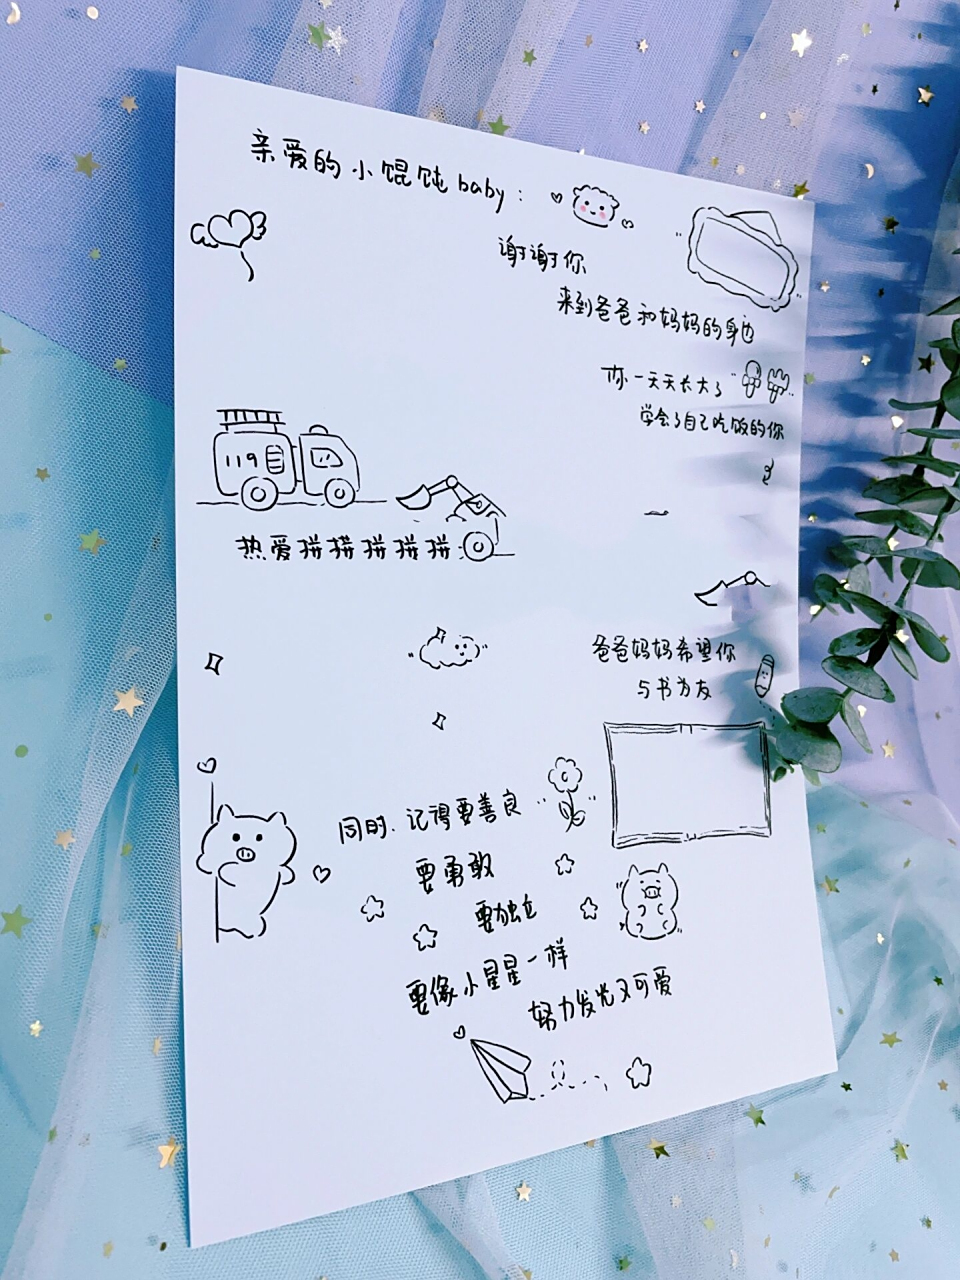 亲爱的小馄饨baby：
谢谢你
来到爸爸和妈妈的身边
你一天天长大了
学会了自己吃饭的你
119
热爱拼拼拼拼拼
爸爸妈妈希望你
与书为友
同时.记得要善良
要勇敢
要独立
要像小星星一样
努力发光又可爱